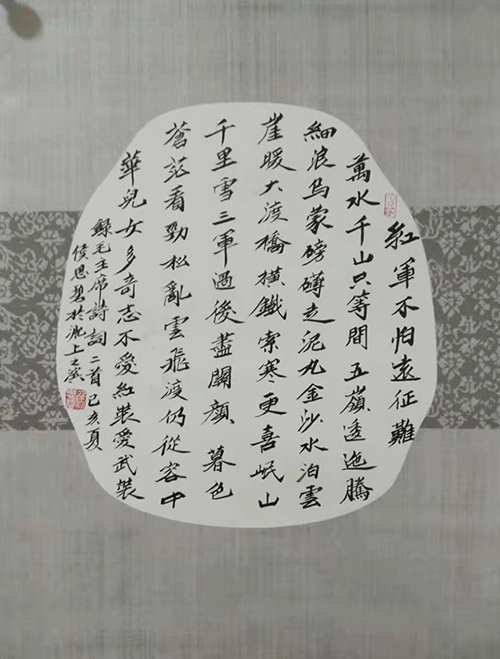 紅軍不怕遠征難
萬水千山只等間五嶺逶迤騰
細浪烏蒙磅礴走泥丸金沙水泊雲
崖暖大渡橋橫鐵索寒更喜岷山
千里雪三軍過後盡開顏 暮色
蒼茫看勁松亂雲飛渡仍從容中
華兒女多奇志不愛紅裝愛武裝
錄毛主席詩詞二首己亥夏
侯思碧於上之